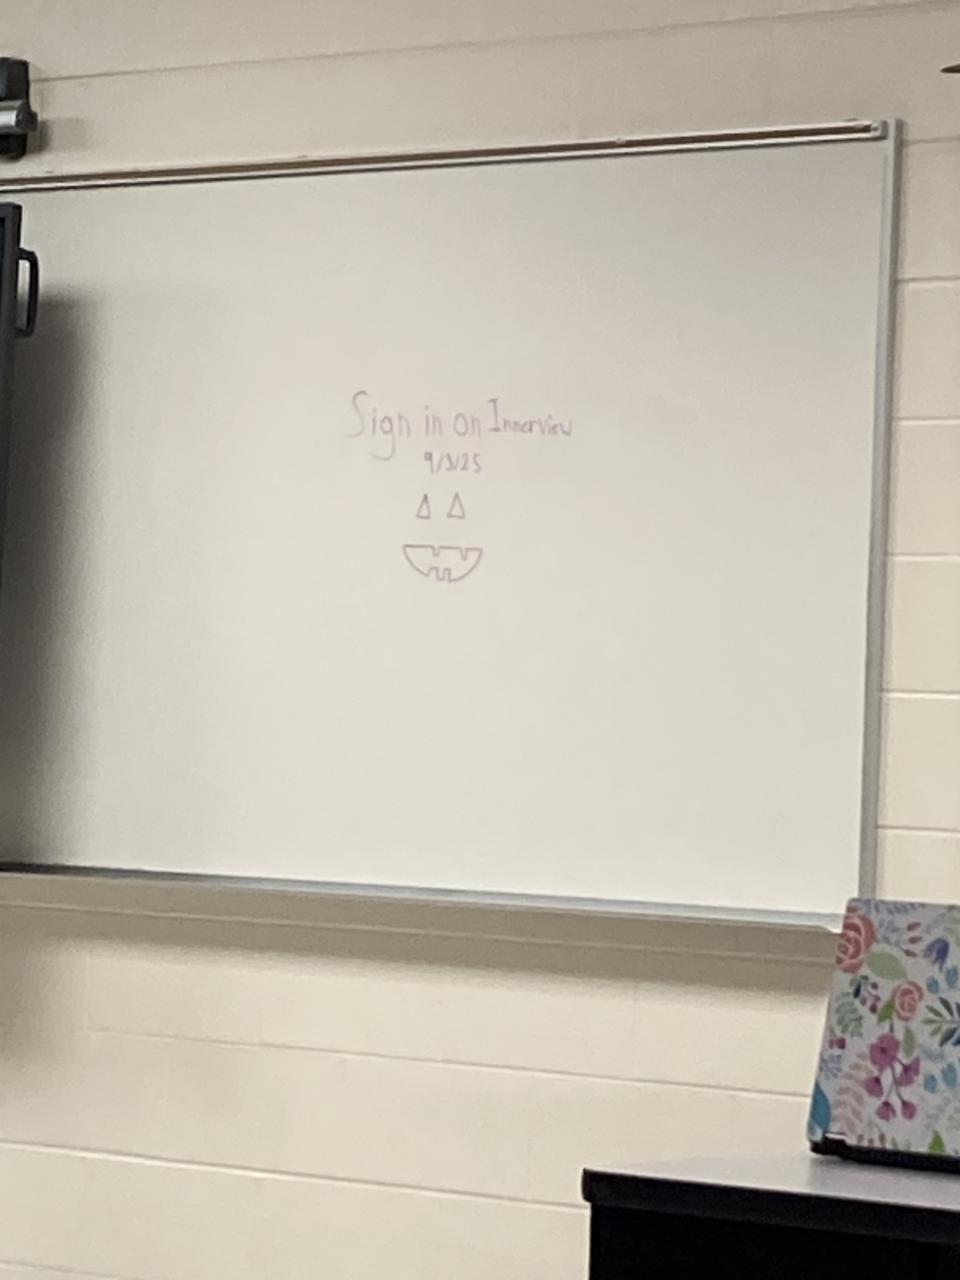 Sign in on Innerview
9/3/25